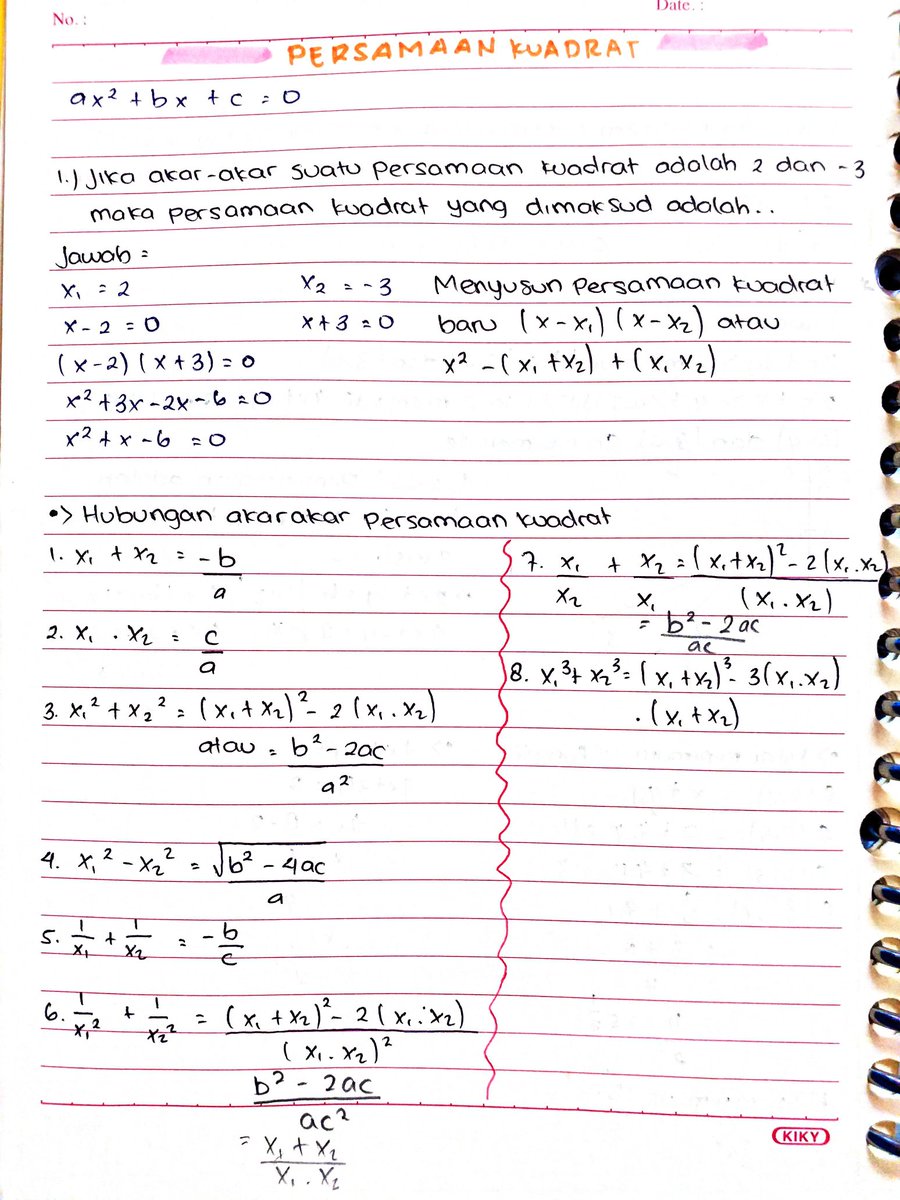 No. :
Date. :
PERSAMAAN KUADRAT
ax² + bx + c = 0
1.) Jika akar-akar suatu persamaan kuadrat adalah 2 dan -3
maka persamaan kuadrat yang dimaksud adalah..
Jawab =
x₁ = 2
x₂ = -3
x - 2 = 0
x + 3 = 0
(x - 2) (x + 3) = 0
x² + 3x - 2x - 6 = 0
x² + x - 6 = 0
Menyusun persamaan kuadrat
baru (x - x₁) (x - x₂) atau
x² - (x₁ + x₂) + (x₁ x₂)
•> Hubungan akar akar persamaan kuadrat
1. x₁ + x₂ = -b/a
2. x₁ . x₂ = c/a
3. x₁² + x₂² = (x₁ + x₂)² - 2 (x₁ . x₂)
atau = b² - 2ac / a²
4. x₁² - x₂² = √b² - 4ac / a
5. 1/x₁ + 1/x₂ = -b/c
6. 1/x₁² + 1/x₂² = (x₁ + x₂)² - 2 (x₁ . x₂) / (x₁ . x₂)²
b² - 2ac / ac²
= x₁ + x₂ / x₁ . x₂
7. x₁/x₂ + x₂/x₁ = (x₁ + x₂)² - 2 (x₁ . x₂) / (x₁ . x₂)
= b² - 2ac / ac
8. x₁³ + x₂³ = (x₁ + x₂)³ - 3 (x₁ . x₂)
. (x₁ + x₂)
KIKY